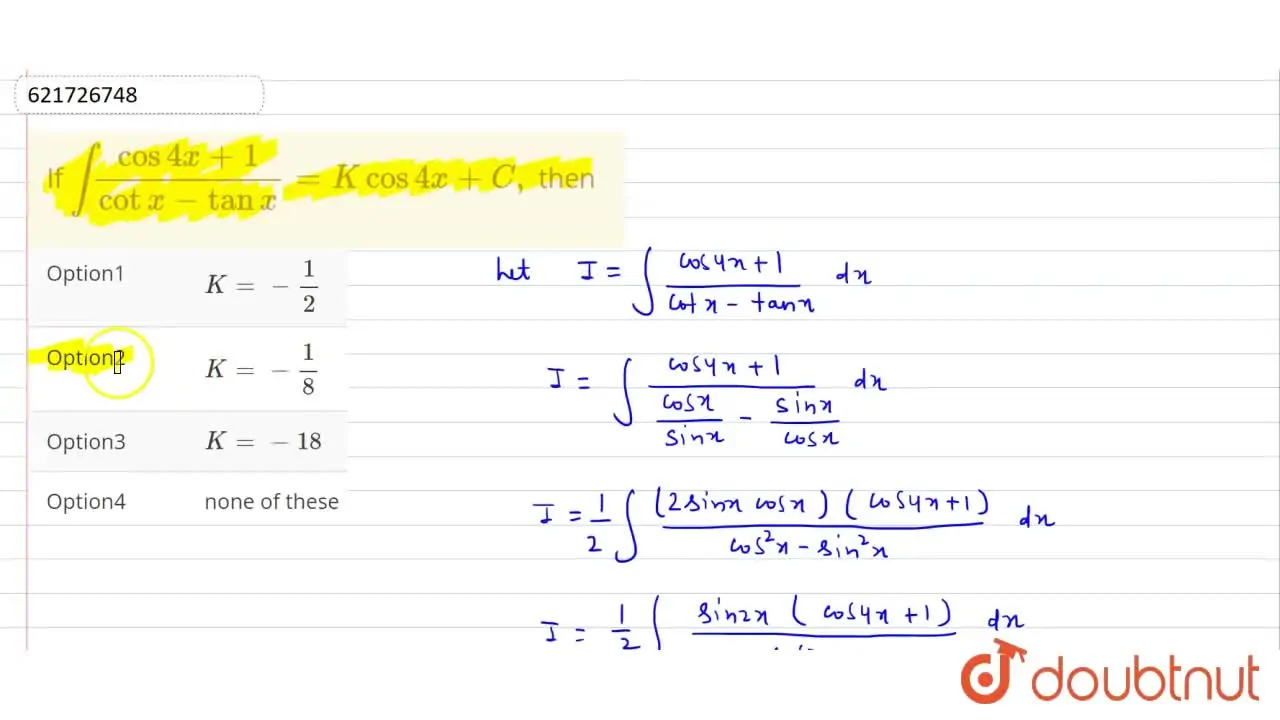 621726748
If ∫ (cos 4x + 1)/(cot x − tan x) = K cos 4x + C, then
Option1 K = −1/2
Option2 K = −1/8
Option3 K = −18
Option4 none of these
Let I = ∫ (cos4x + 1)/(cotx − tanx) dx
I = ∫ (cos4x + 1)/(cosx/sinx − sinx/cosx) dx
I = 1/2 ∫ (2sinx cosx)(cos4x+1)/(cos²x − sin²x) dx
I = 1/2 ∫ sin2x (cos4x + 1) dx
doubtnut